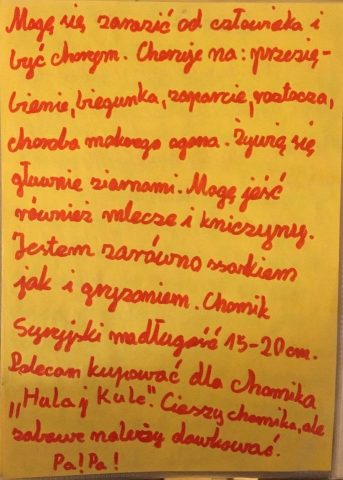 Mogę się zarazić od człowieka i
być chorym. Choruje na: przezię-
bienie, biegunka, zaparcie, roztocza,
choroba mokrego ogona. Żywię się
głównie ziarnami. Mogę jeść
również mlecze i kniczyny.
Jestem zarówno ssakiem
jak i gryzoniem. Chomik
Syryjski ma długość 15-20 cm.
Polecam kupować dla chomika
„Hulaj Kule". Cieszy chomika, ale
zabawe należy dawkować.
Pa! Pa!